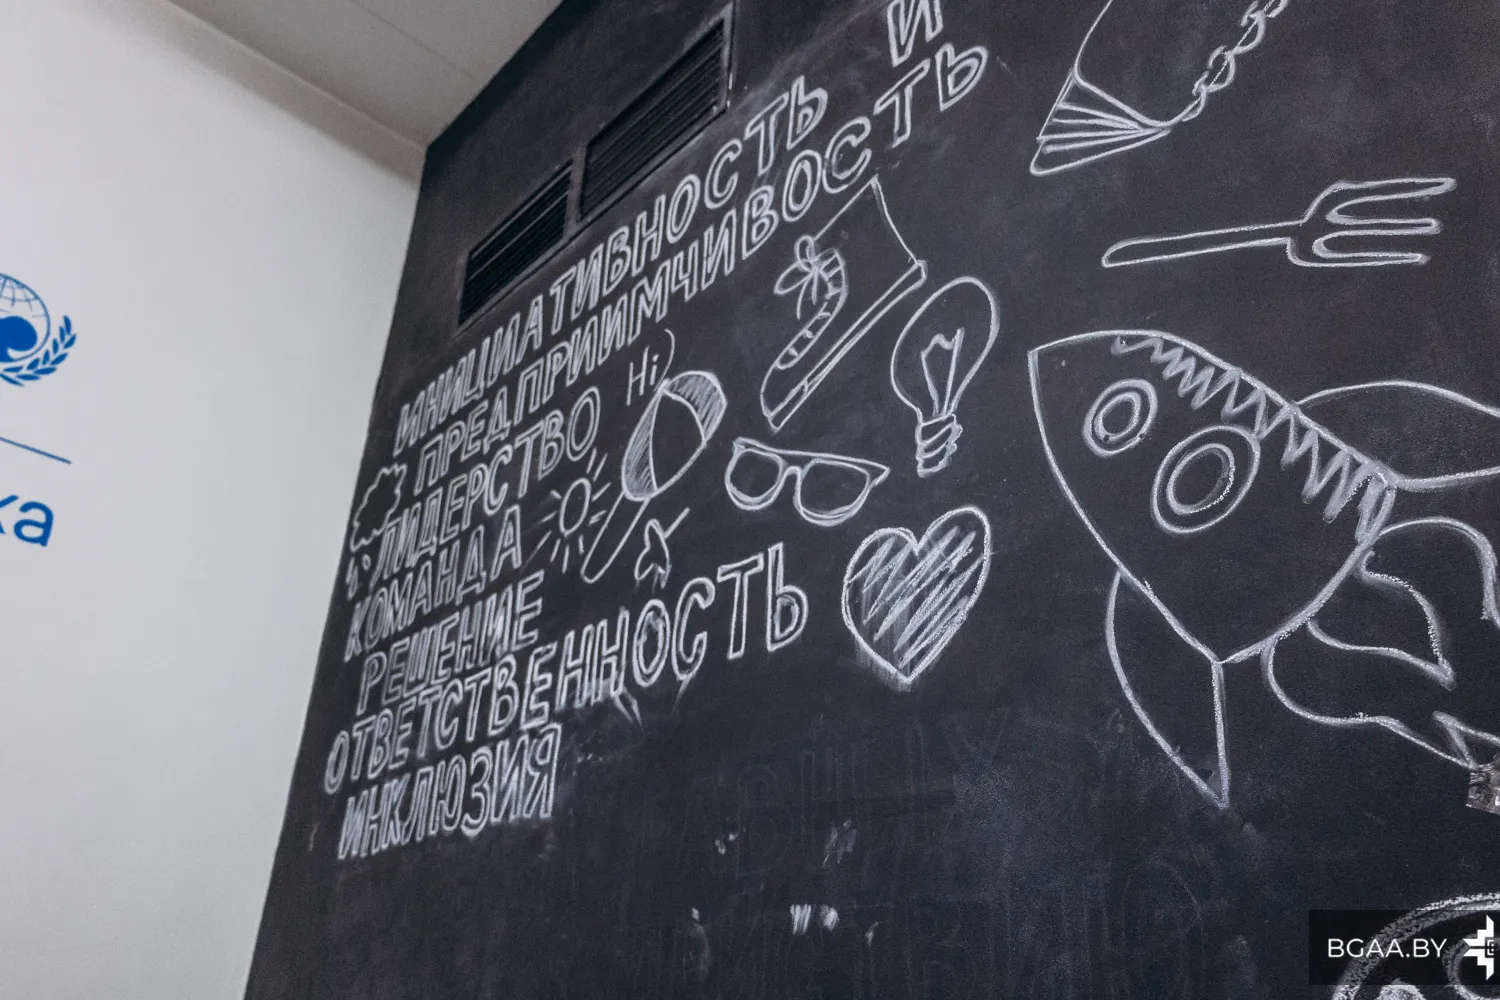 ИНИЦИАТИВНОСТЬ И
ПРЕДПРИИМЧИВОСТЬ
ЛИДЕРСТВО
Hi
КОМАНДА
РЕШЕНИЕ
ОТВЕТСТВЕННОСТЬ
ИНКЛЮЗИЯ
BGAA.BY